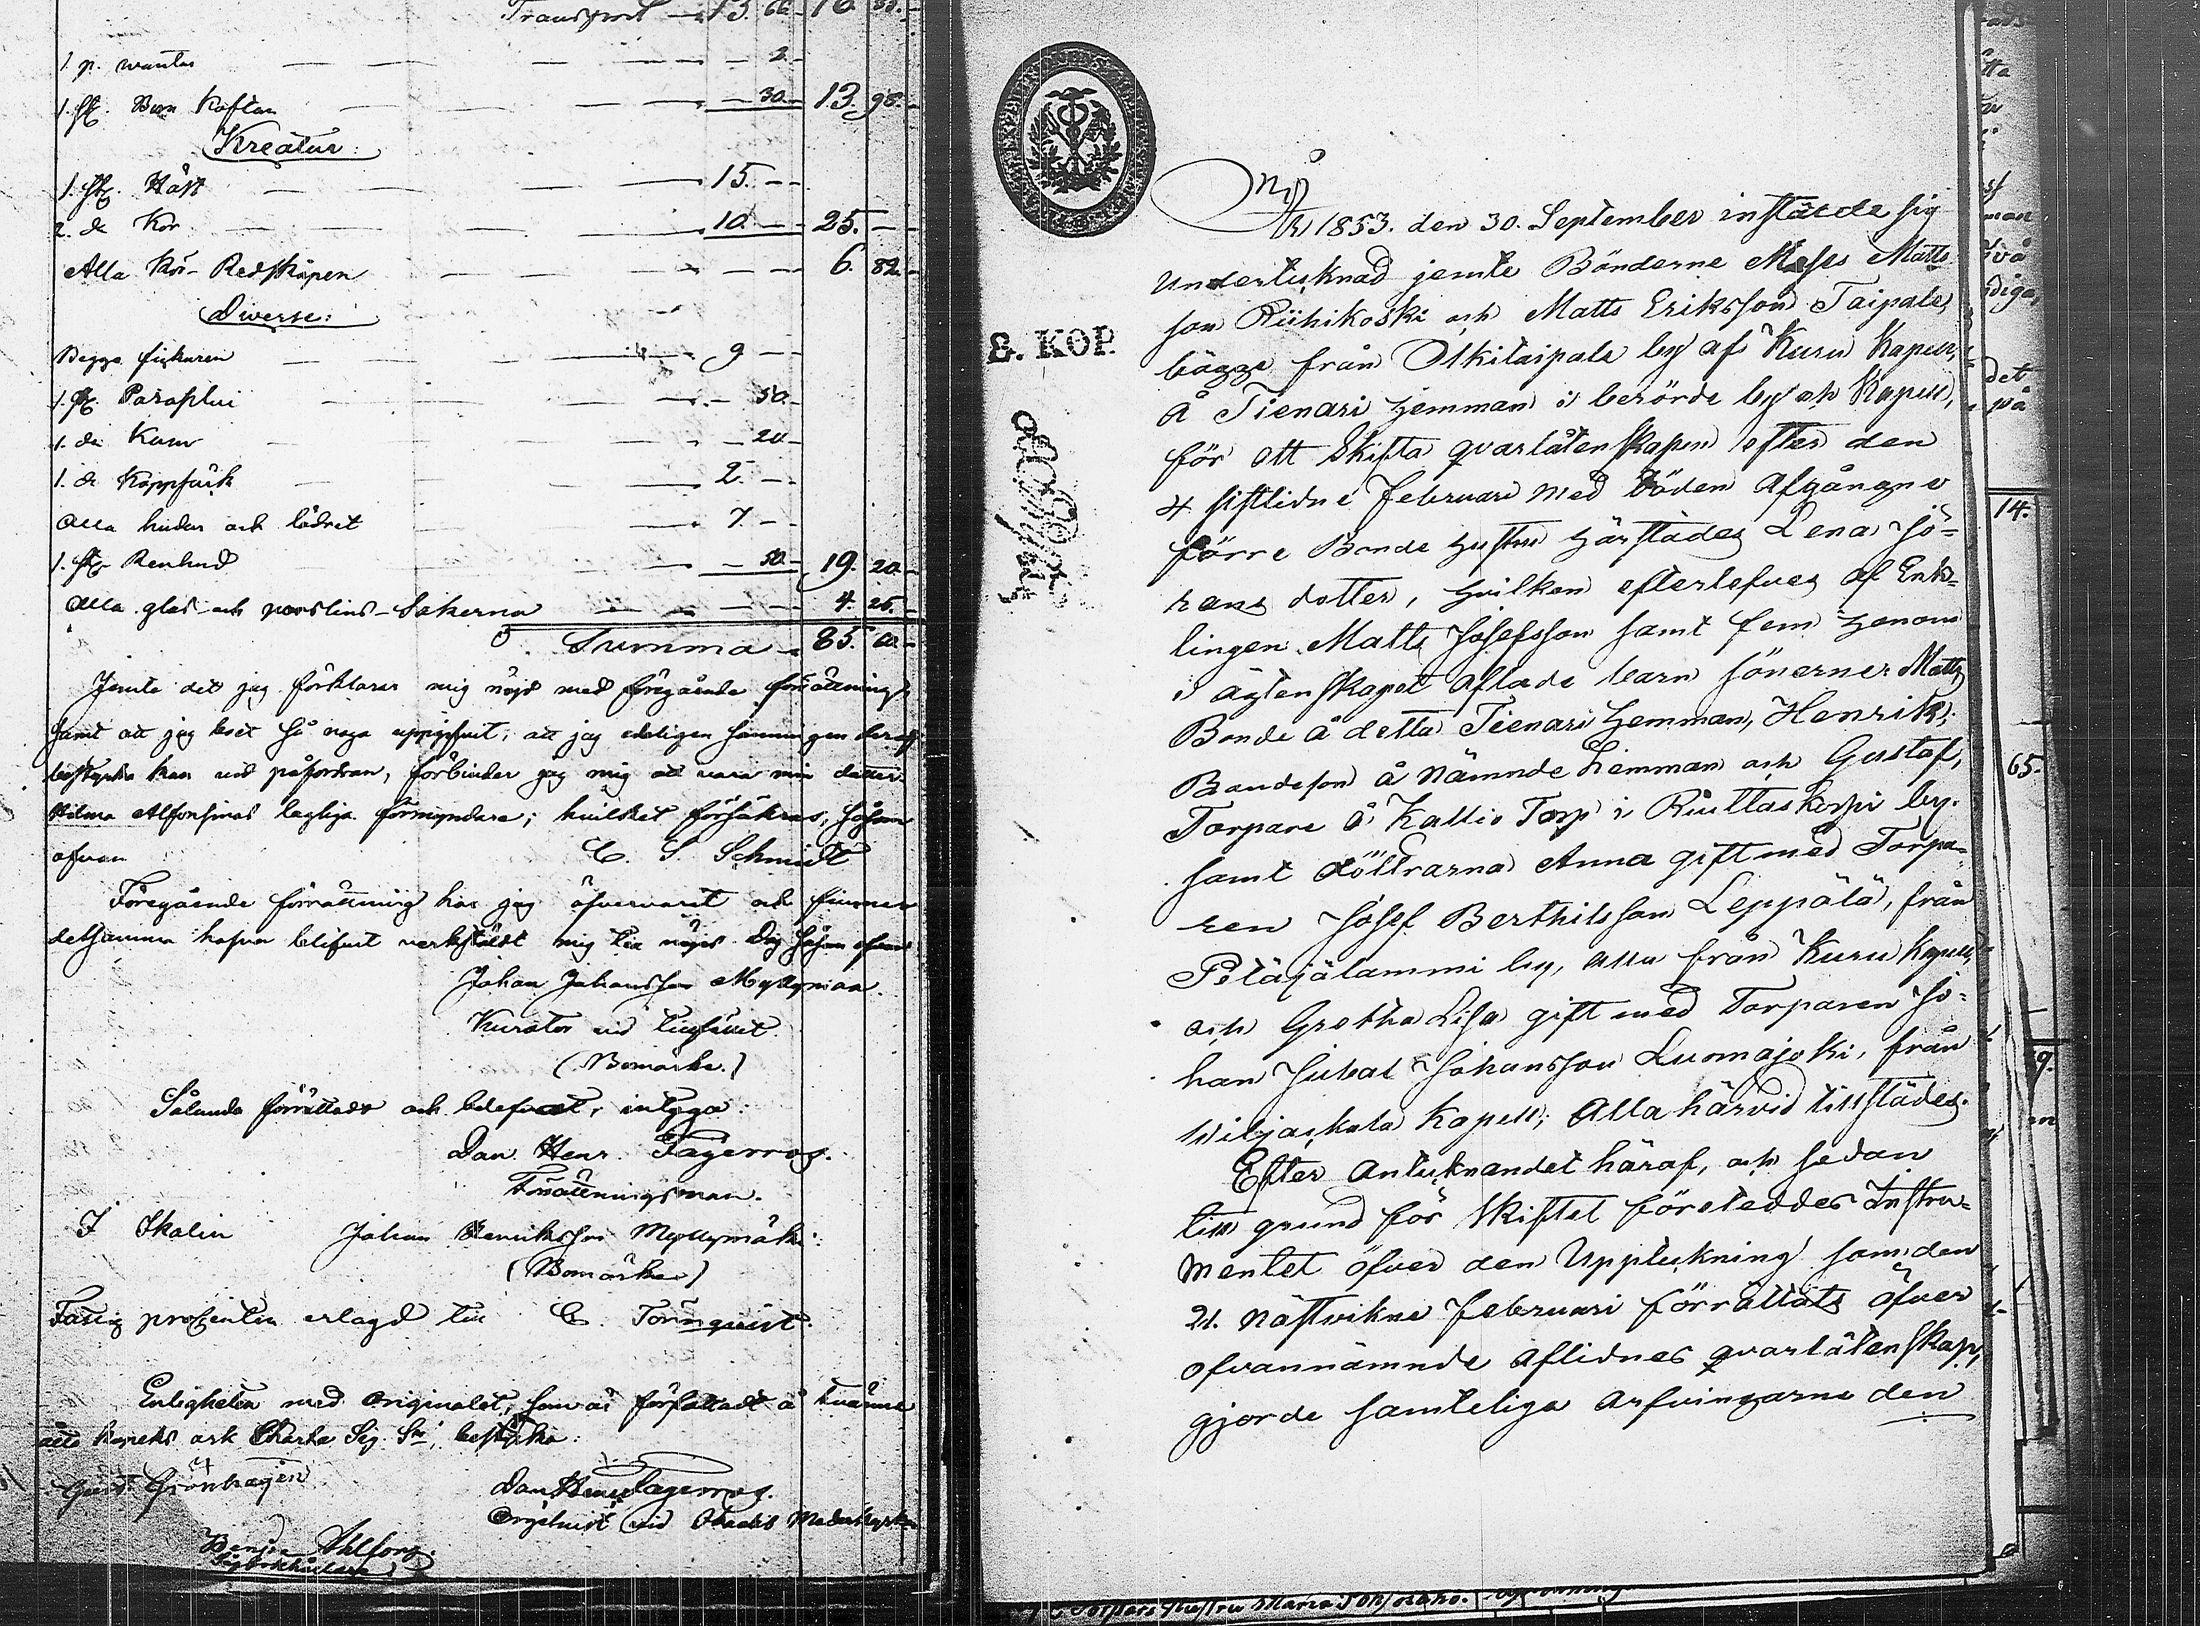 Transport 13. 66. 10. 55.
1. p. wantar 2.
1. st. Barn Kaftan 30. 13. 98.
Kreatur:
1. st. Häst 15. -
2. do Kor 10. - 25. -
Alla Kör-Redskapen 6. 82.
Diverse:
Begge 9 -
1. st. Paraplui - 50.
1. do Kam - 20
1. do Käppsäck 2. -
Alla hudar och lädret 7. -
1. st. Renhud - 50. 19. 20.
Alla glas och porslins-Sakerna 4. 25.
Summa 85. 60.
Jemte det jag förklarar mig nöjd med föregående förrättning
samt att jag boet så noga uppgifvit, att jag edeligen sanningen deraf
bestyrka kan vid påfordran, förbinder jag mig att vara min dotter
Hilma Alfonsinas lagliga förmyndare; hvilket försäkras, såsom
ofvan C. S. Schmidt
Föregående förrättning har jag öfvervarit och finner
detsamma hafva blifvit verkstäldt mig till nöjes. Dag såsom ofvan
Johan Johansson Myllymaa.
Kurator vid tillfället
(Bomärke.)
Sålunda förrättadt och befunnet, intyga:
Dan. Henr. Fagerroos.
Förrättningsman.
J Skalin Johan Henriksson Myllymäki.
(Bomärke)
Fattig procenten erlagd till C. Törnqvist.
Enligheten med Originalet, som är författadt å tvänne
åtta kopeks ark Charta Sig. Srf bestyrka:
Gust Grönhagen Dan Henr Fagerroos.
Orgelnist vid Moderkyrkan
Benj. Ahlfors
8. KOP.
År 1853. den 30. September instälde sig
undertecknad jemte Bönderne Moses Matts
son Riihikoski och Matts Eriksson Taipale,
bägge från Olkitaipale by af Kuru Kapell,
å Tienari hemman i berörde by och Kapell,
för att Skifta qvarlåtenskapen efter den
4 sistlidne Februari med döden afgångne
förre Bonde hustru härstädes Lena Jö-
rans dotter, hvilken efterlefves af Enk-
lingen Matts Josefsson samt fem honom
i ägtenskapet aflade barn sönerner Matts,
Bonde å detta Tienari hemman, Henrik,
Bondeson å nämnde hemman och Gustaf,
Torpare å Kallio Torp i Riuttaskorpi by.
samt döttrarna Anna gift med Torpa-
ren Josef Berthilsson Leppälä, från
Petäjälammi by, alla från Kuru Kapell,
och Gretha Lisa gift med Torparen Jo-
han Johansson Luomajoki, från
Wiljakala Kapell; Alla härvid tillstädes.
Efter Antecknandet häraf, och sedan
till grund för Skiftet företeddes Instru-
mentet öfver den Uppteckning som den
21. nästvikne Februari förrättats öfver
ofvannämnde aflidnes qvarlåtenskap,
gjorde samteliga arfvingarne den
det
på
14.
65.
9.